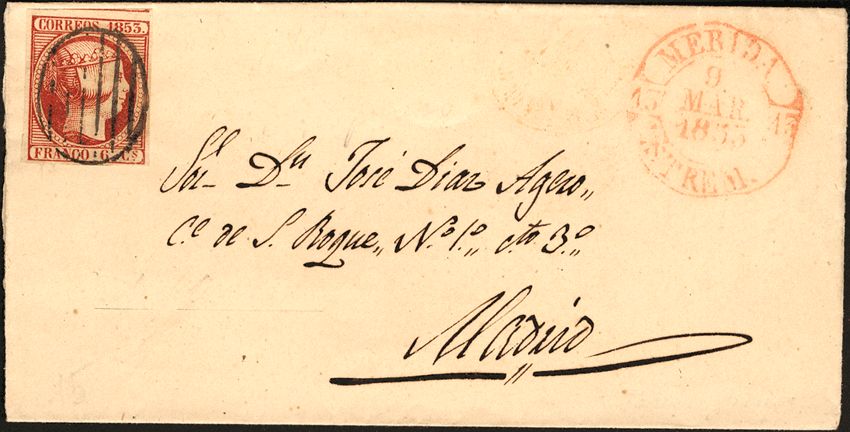 CORREOS 1853.
FRANCO 6 Cs
MERIDA
9
MAR
1853
15 15
EXTREM.
Sor. Dn. José Diaz Agero,,
Ce. de S. Roque,, No. 1o.,, cto. 3o.,,
Madrid